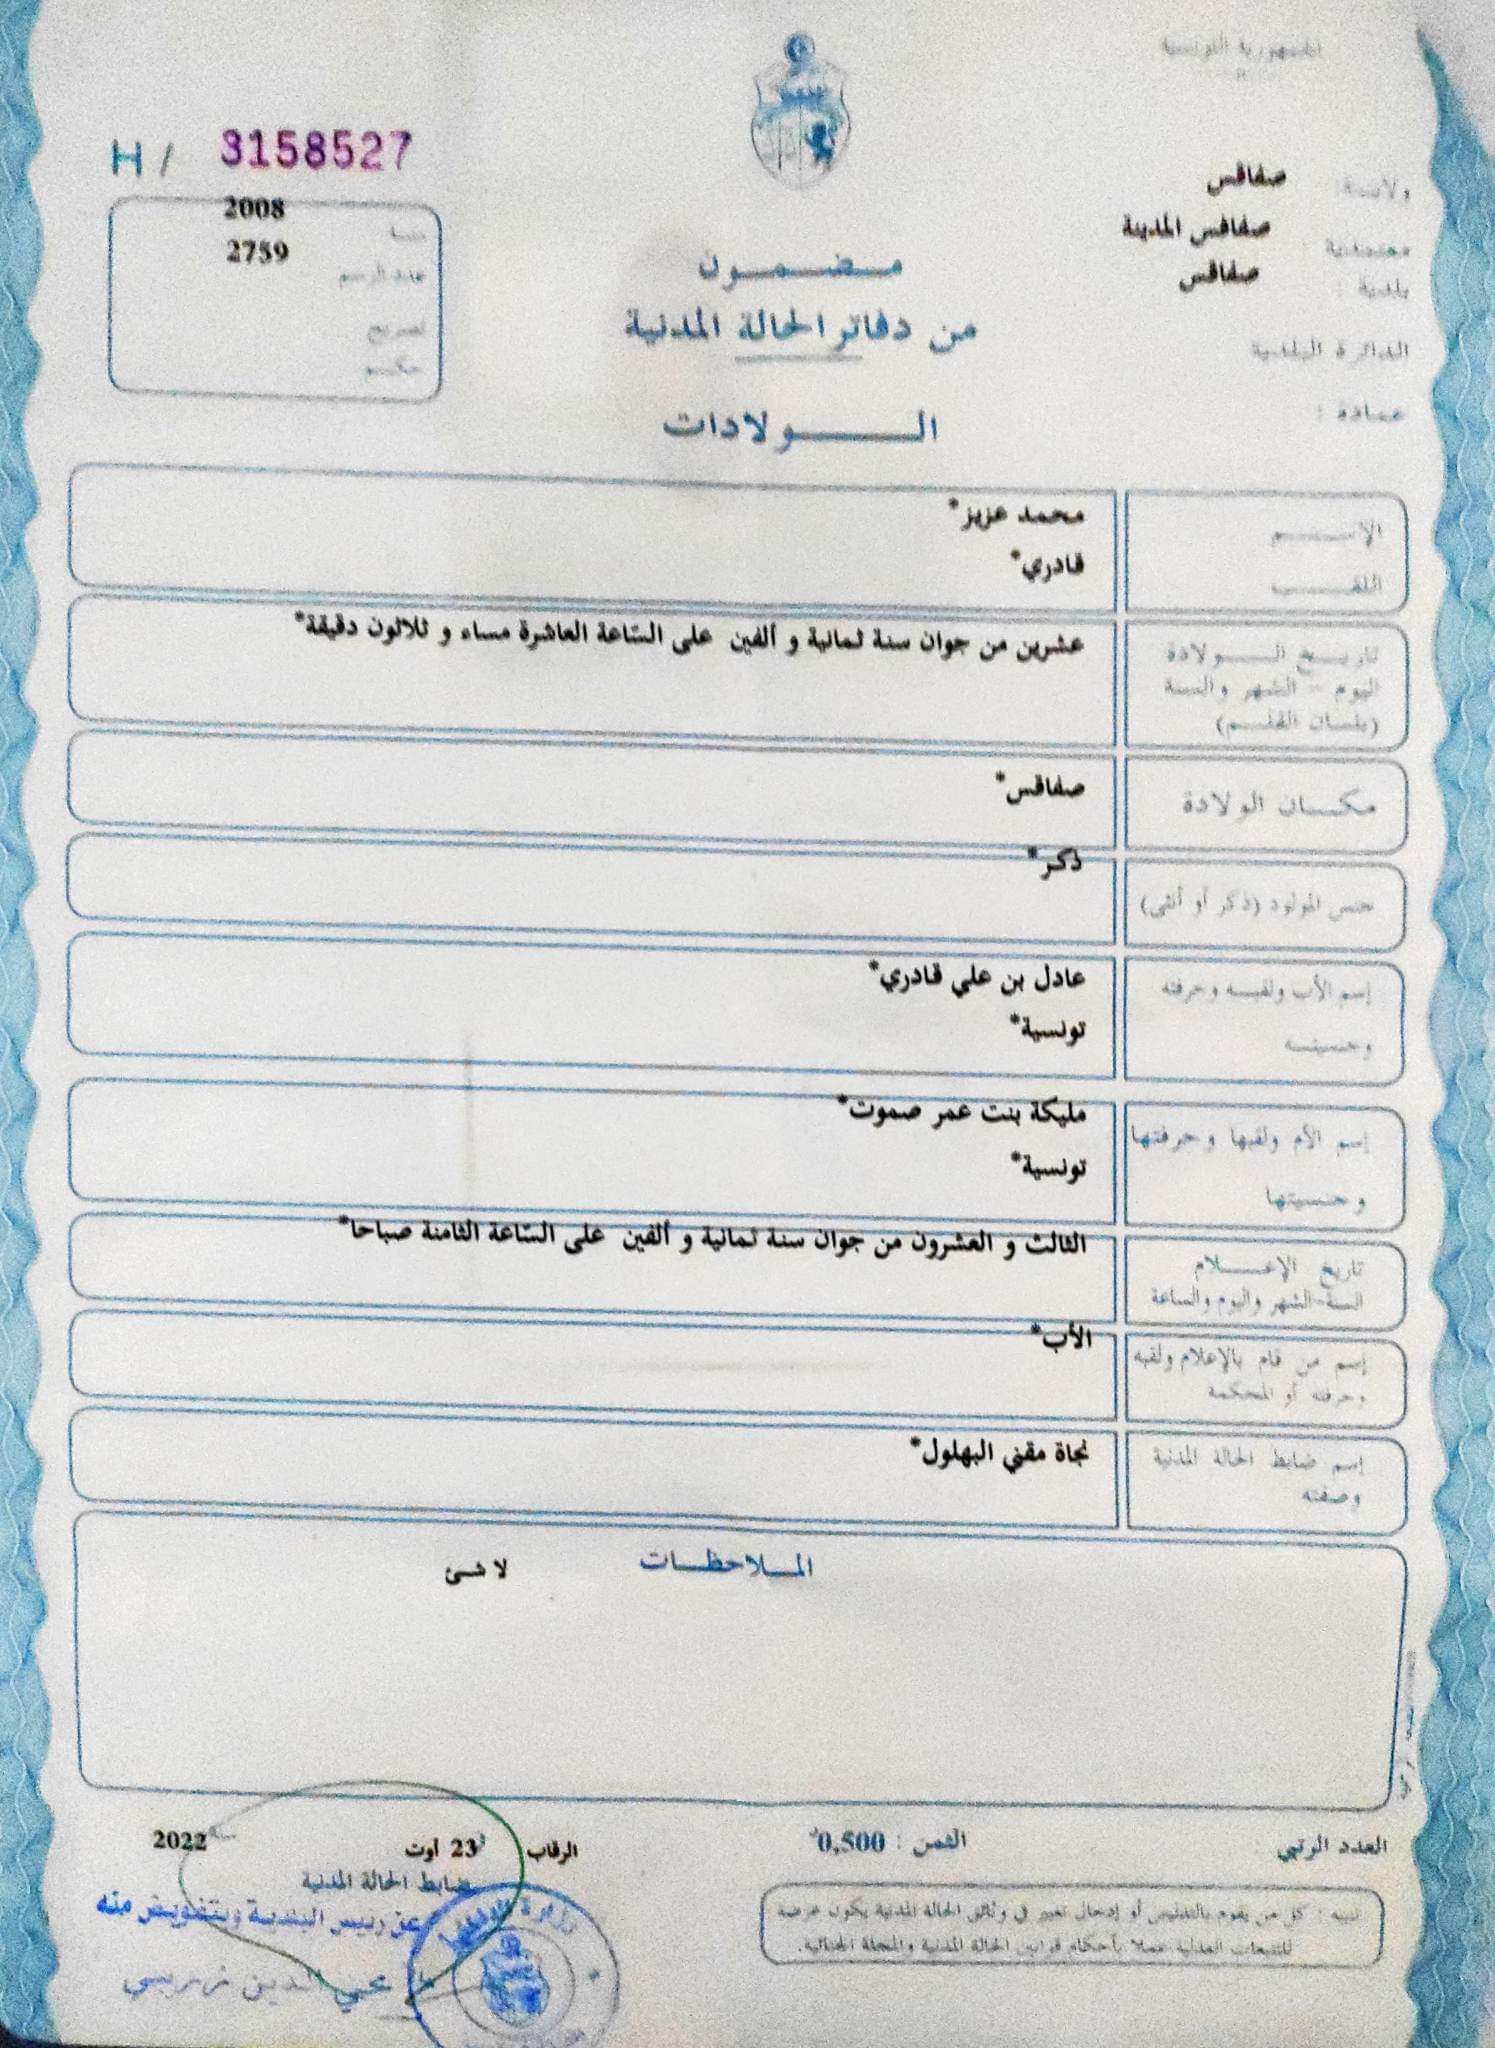 الجمهورية التونسية
H / 3158527
ولاية : صفاقس
معتمدية : صفاقس المدينة
بلدية : صفاقس
الدائرة البلدية
عمادة :
سنة 2008
عدد الرسم 2759
تصريح
حكم
مضمون
من دفاتر الحالة المدنية
الولادات
الإسم محمد عزيز*
اللقب قادري*
تاريخ الولادة عشرين من جوان سنة ثمانية و ألفين على السّاعة العاشرة مساء و ثلاثون دقيقة*
اليوم - الشهر والسنة
(بلسان القلم)
مكان الولادة صفاقس*
جنس المولود (ذكر أو أنثى) ذكر*
إسم الأب ولقبه وحرفته عادل بن علي قادري*
وجنسيته تونسية*
إسم الأم ولقبها وحرفتها مليكة بنت عمر صموت*
وجنسيتها تونسية*
تاريخ الإعلام الثالث و العشرون من جوان سنة ثمانية و ألفين على السّاعة الثامنة صباحا*
السنة-الشهر واليوم والساعة
إسم من قام بالإعلام ولقبه الأب*
وحرفته أو المحكمة
إسم ضابط الحالة المدنية نجاة مقني البهلول*
وصفته
الملاحظات لا شئ
العدد الرتبي
الثمن : 0,500د
الرقاب في 23 أوت سنة 2022
ضابط الحالة المدنية
عن رئيس البلدية وبتفويض منه
محي الدين
تنبيه : كل من يقوم بالتدليس أو إدخال تغيير في وثائق الحالة المدنية يكون عرضة
للتتبعات العدلية عملا بأحكام قوانين الحالة المدنية والمجلة الجنائية.
وزارة